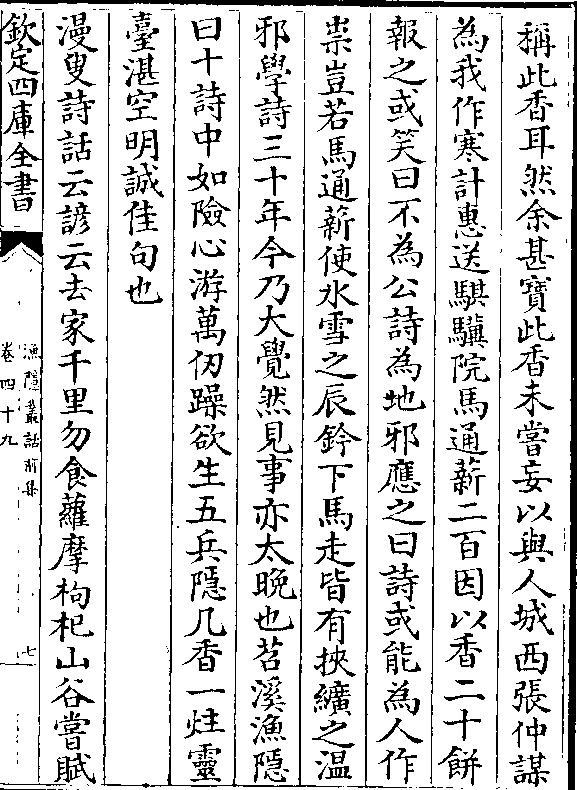 稱此香耳然余甚寶此香未嘗妄以與人城西張仲謀
為我作寒計惠送騏驥院馬通薪二百因以香二十餅
報之或笑曰不為公詩為地邪應之曰詩或能為人作
祟豈若馬通薪使氷雪之辰鈐下馬走皆有挾纊之溫
邪學詩三十年今乃大覺然見事亦太晚也苕溪漁隱
曰十詩中如險心游萬仞躁欲生五兵隱几香一炷靈
臺湛空明誠佳句也
漫叟詩話云諺云去家千里勿食蘿摩枸杞山谷嘗賦
欽定四庫全書
漁隱叢話前集
卷四十九
七